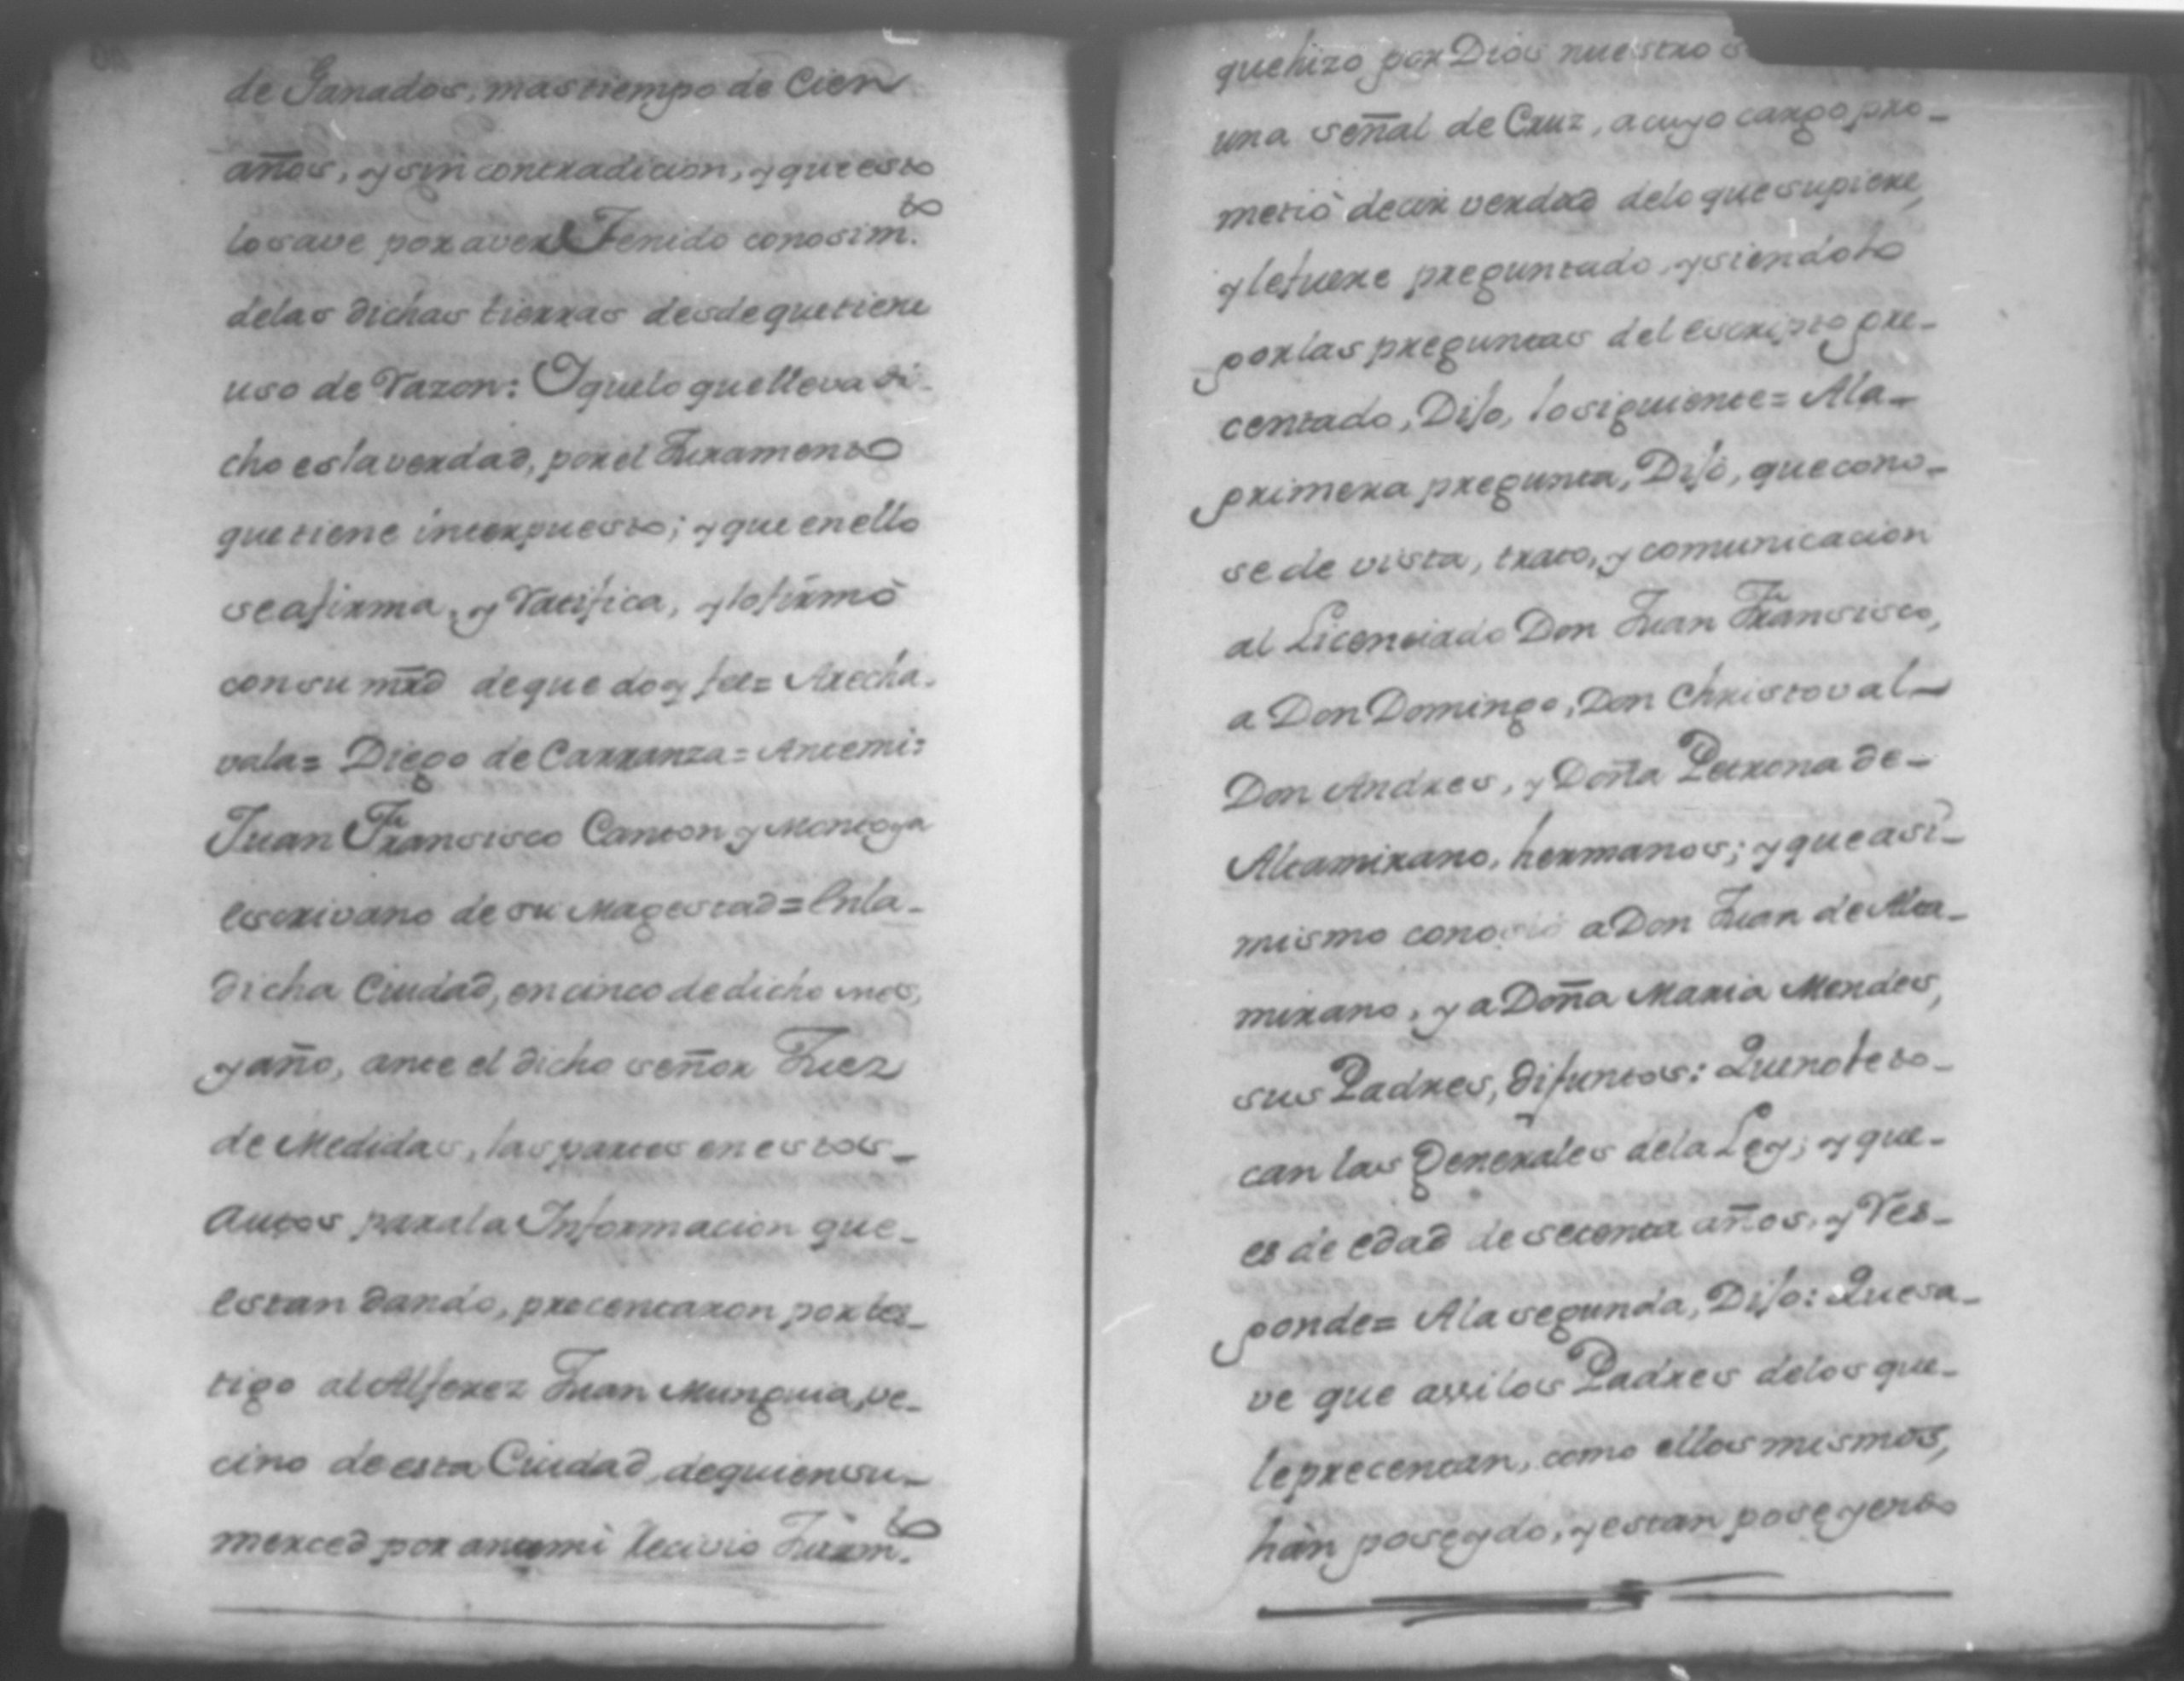 de Ganados, mas tiempo de Cien
años, y sin contradicion, y que esto
lo save por aver Tenido conosim.to
de las dichas tierras desde que tiene
uso de razon: Y que lo que lleva di-
cho es la verdad, por el Juramento
que tiene interpuesto; y que en ello
se afirma, y ratifica, y lo firmó
con su mrd de que doy fee= Arecha-
vala= Diego de Carranza= Antemi:
Juan Fransisco Canton y Montoya
Escrivano de su Magestad= En la-
dicha Ciudad, en cinco de dicho mes,
y año, ante el dicho señor Juez
de Medidas, las partes en estos-
Autos para la Informacion que-
estan dando, precentaron por tes-
tigo al Alferez Juan Munguia, ve-
cino de esta Ciudad, de quien su-
merced por antemi recivio Juram.to
que hizo por Dios nuestro
una señal de Cruz, a cuyo cargo pro-
metió decir verdad de lo que supiere,
y le fuere preguntado, y siendolo
por las preguntas del escripto pre-
centado, Dijo, lo siguiente= A la-
primera pregunta, Dijo, que cono-
se de vista, trato, y comunicacion
al Licenciado Don Juan Fransisco,
a Don Domingo, Don Christoval-
Don Andres, y Doña Petrona de-
Altamirano, hermanos; y que asi-
mismo conosió a Don Juan de Alta-
mirano, y a Doña Maria Mendes,
sus Padres, difuntos: Que no le to-
can las Generales de la Ley; y que-
es de edad de setenta años, y res-
ponde= A la segunda, Dijo: Que sa-
ve que assi los Padres de los que-
le precentan, como ellos mismos,
han poseydo, y estan poseyendo